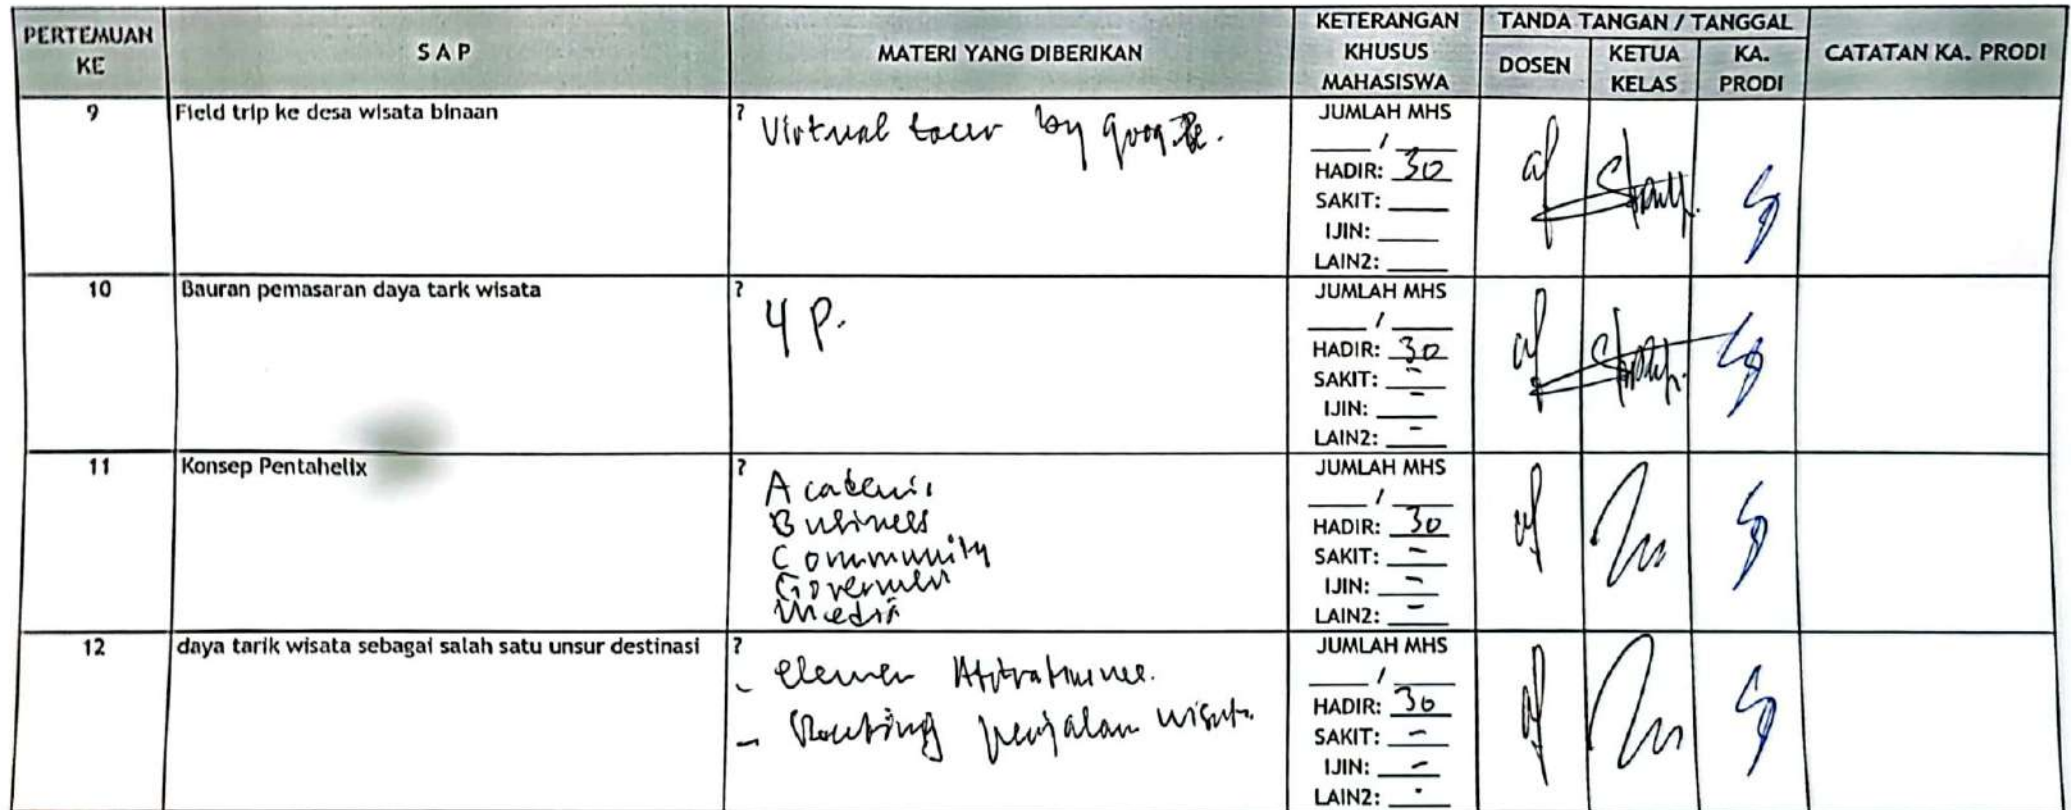 PERTEMUAN KE
S A P
MATERI YANG DIBERIKAN
KETERANGAN KHUSUS MAHASISWA
TANDA TANGAN / TANGGAL
DOSEN
KETUA KELAS
KA. PRODI
CATATAN KA. PRODI
9
Field trip ke desa wisata binaan
?
Virtual tour by google.
JUMLAH MHS
/
HADIR: 30
SAKIT:
IJIN:
LAIN2:
10
Bauran pemasaran daya tark wisata
?
4 P.
JUMLAH MHS
/
HADIR: 30
SAKIT: -
IJIN: -
LAIN2: -
11
Konsep Pentahelix
?
Academic
Business
Community
Government
Media
JUMLAH MHS
/
HADIR: 30
SAKIT: -
IJIN: -
LAIN2: -
12
daya tarik wisata sebagai salah satu unsur destinasi
?
- elemen
- Routing perjalanan wisata.
JUMLAH MHS
/
HADIR: 30
SAKIT: -
IJIN: -
LAIN2: -